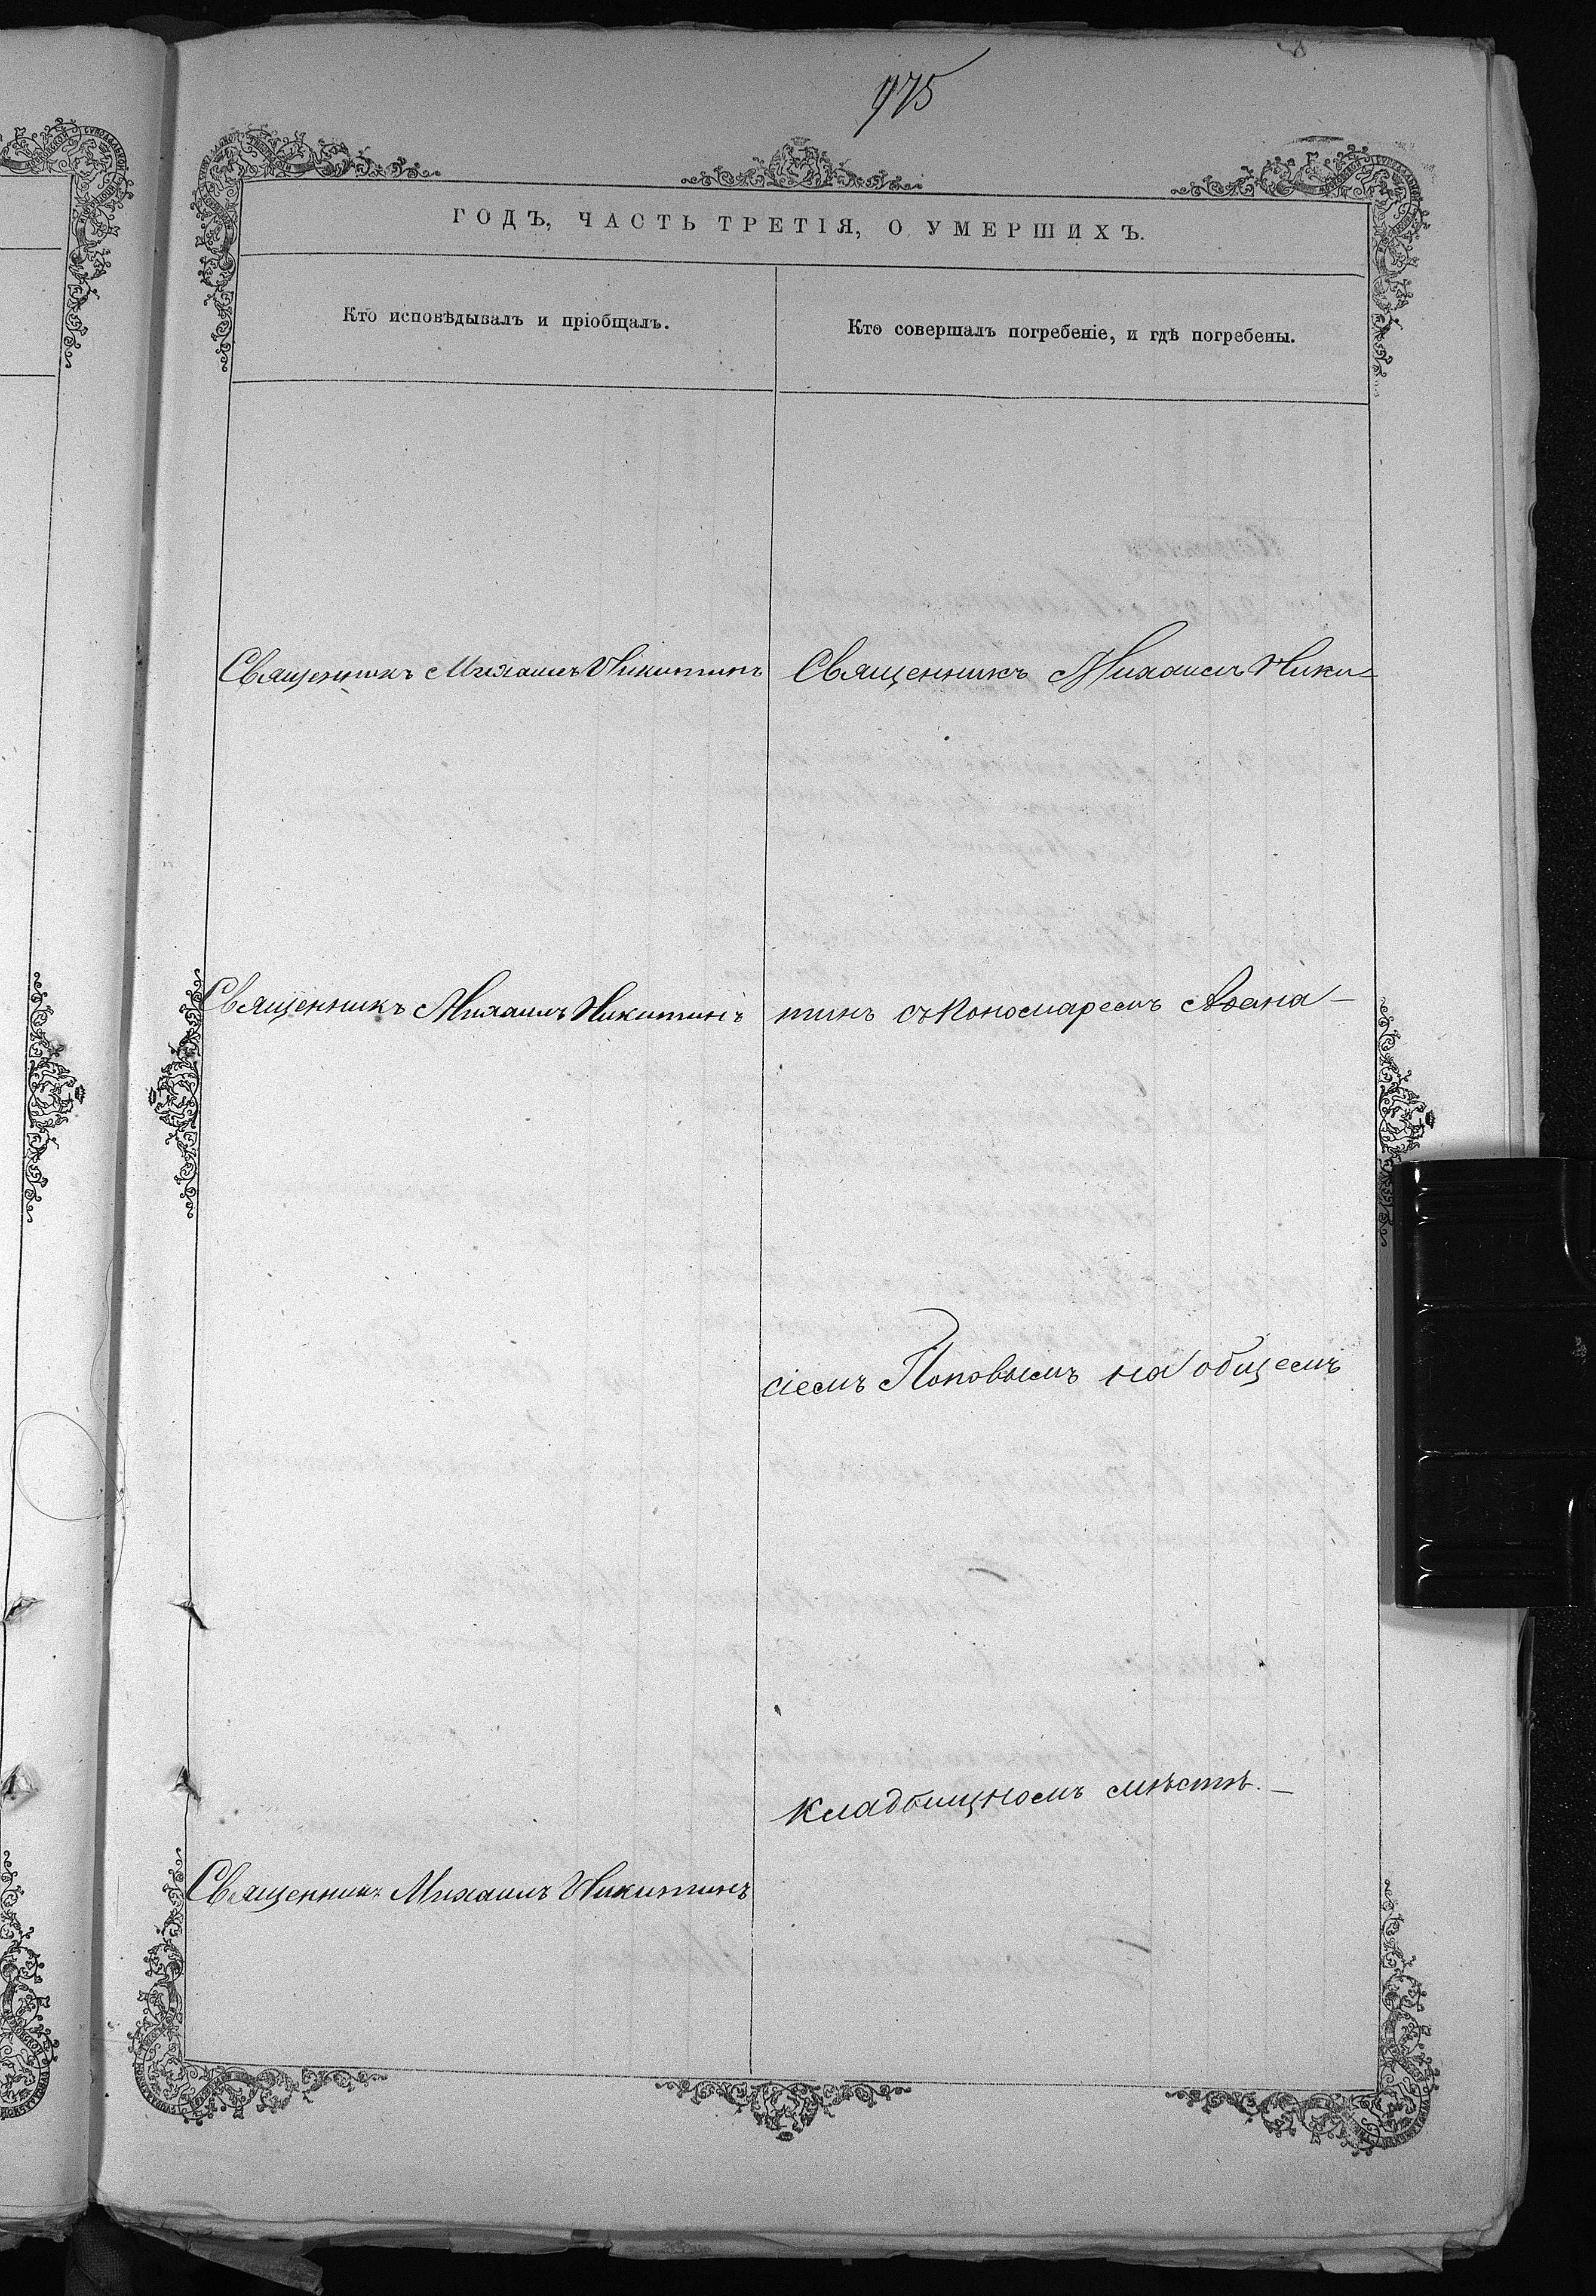 975
ГОДЪ, ЧАСТЬ ТРЕТІЯ, О УМЕРШИХЪ.
Кто исповѣдывалъ и пріобщалъ.
Кто совершалъ погребеніе, и гдѣ погребены.
Священникъ Михаилъ Никитинъ
Священникъ Михаилъ Никитинъ
Священникъ Михаилъ Никитинъ
Священникъ Михаилъ Ники-
тинъ съ Пономаремъ Аѳана-
сіемъ Поповымъ на общемъ
кладбищномъ мѣстѣ. —